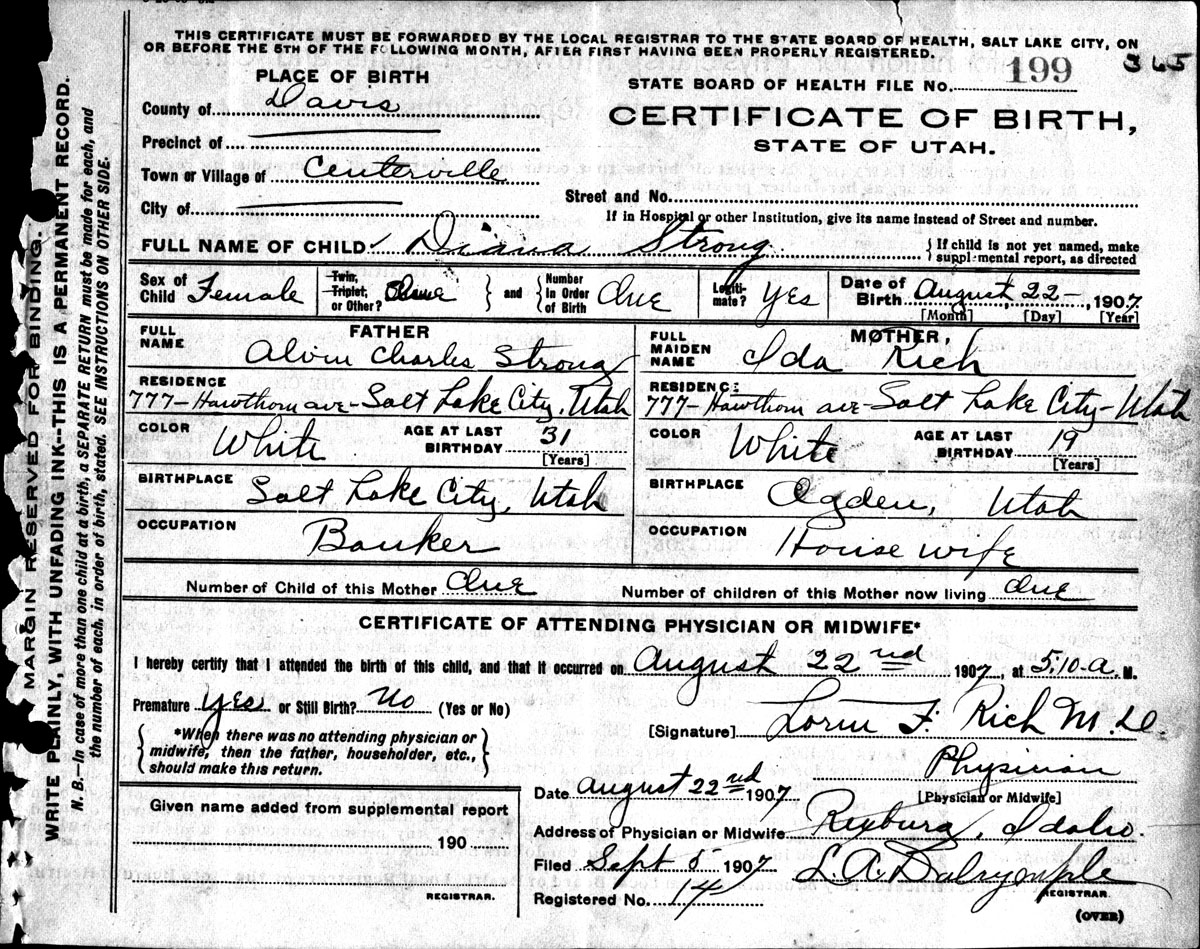 THIS CERTIFICATE MUST BE FORWARDED BY THE LOCAL REGISTRAR TO THE STATE BOARD OF HEALTH, SALT LAKE CITY, ON
OR BEFORE THE 5TH OF THE FOLLOWING MONTH, AFTER FIRST HAVING BEEN PROPERLY REGISTERED.
365
PLACE OF BIRTH
STATE BOARD OF HEALTH FILE NO. 199
County of Davis
CERTIFICATE OF BIRTH,
STATE OF UTAH.
Precinct of
Town or Village of Centerville
Street and No.
City of
If in Hospital or other Institution, give its name instead of Street and number.
FULL NAME OF CHILD Diana Strong
{If child is not yet named, make
supplemental report, as directed
Sex of Child Female
Twin, Triplet, or Other? One } and { Number in Order of Birth One
Legitimate? Yes
Date of Birth August 22 - , 1907
[Month] [Day] [Year]
FATHER
FULL NAME Alvin Charles Strong
RESIDENCE
777- Hawthorn ave- Salt Lake City, Utah
COLOR White AGE AT LAST BIRTHDAY 31
[Years]
BIRTHPLACE
Salt Lake City, Utah
OCCUPATION
Banker
MOTHER,
FULL MAIDEN NAME Ida Rich
RESIDENCE
777- Hawthorn ave- Salt Lake City- Utah
COLOR White AGE AT LAST BIRTHDAY 19
[Years]
BIRTHPLACE
Ogden, Utah
OCCUPATION
House wife
Number of Child of this Mother One Number of children of this Mother now living One
CERTIFICATE OF ATTENDING PHYSICIAN OR MIDWIFE*
I hereby certify that I attended the birth of this child, and that it occurred on August 22nd 1907, at 5:10 a. M.
Premature Yes or Still Birth? No (Yes or No)
[Signature] Lorin F. Rich M. D.
{ *When there was no attending physician or
midwife, then the father, householder, etc.,
should make this return. }
Physician
[Physician or Midwife]
Date August 22nd 1907
Given name added from supplemental report
190
REGISTRAR.
Address of Physician or Midwife Rexburg, Idaho.
Filed Sept 5 1907 L. A. Dalrymple
REGISTRAR.
Registered No. 14
(OVER)
MARGIN RESERVED FOR BINDING.
WRITE PLAINLY, WITH UNFADING INK--THIS IS A PERMANENT RECORD.
N. B.—In case of more than one child at a birth, a SEPARATE RETURN must be made for each, and
the number of each, in order of birth, stated. SEE INSTRUCTIONS ON OTHER SIDE.